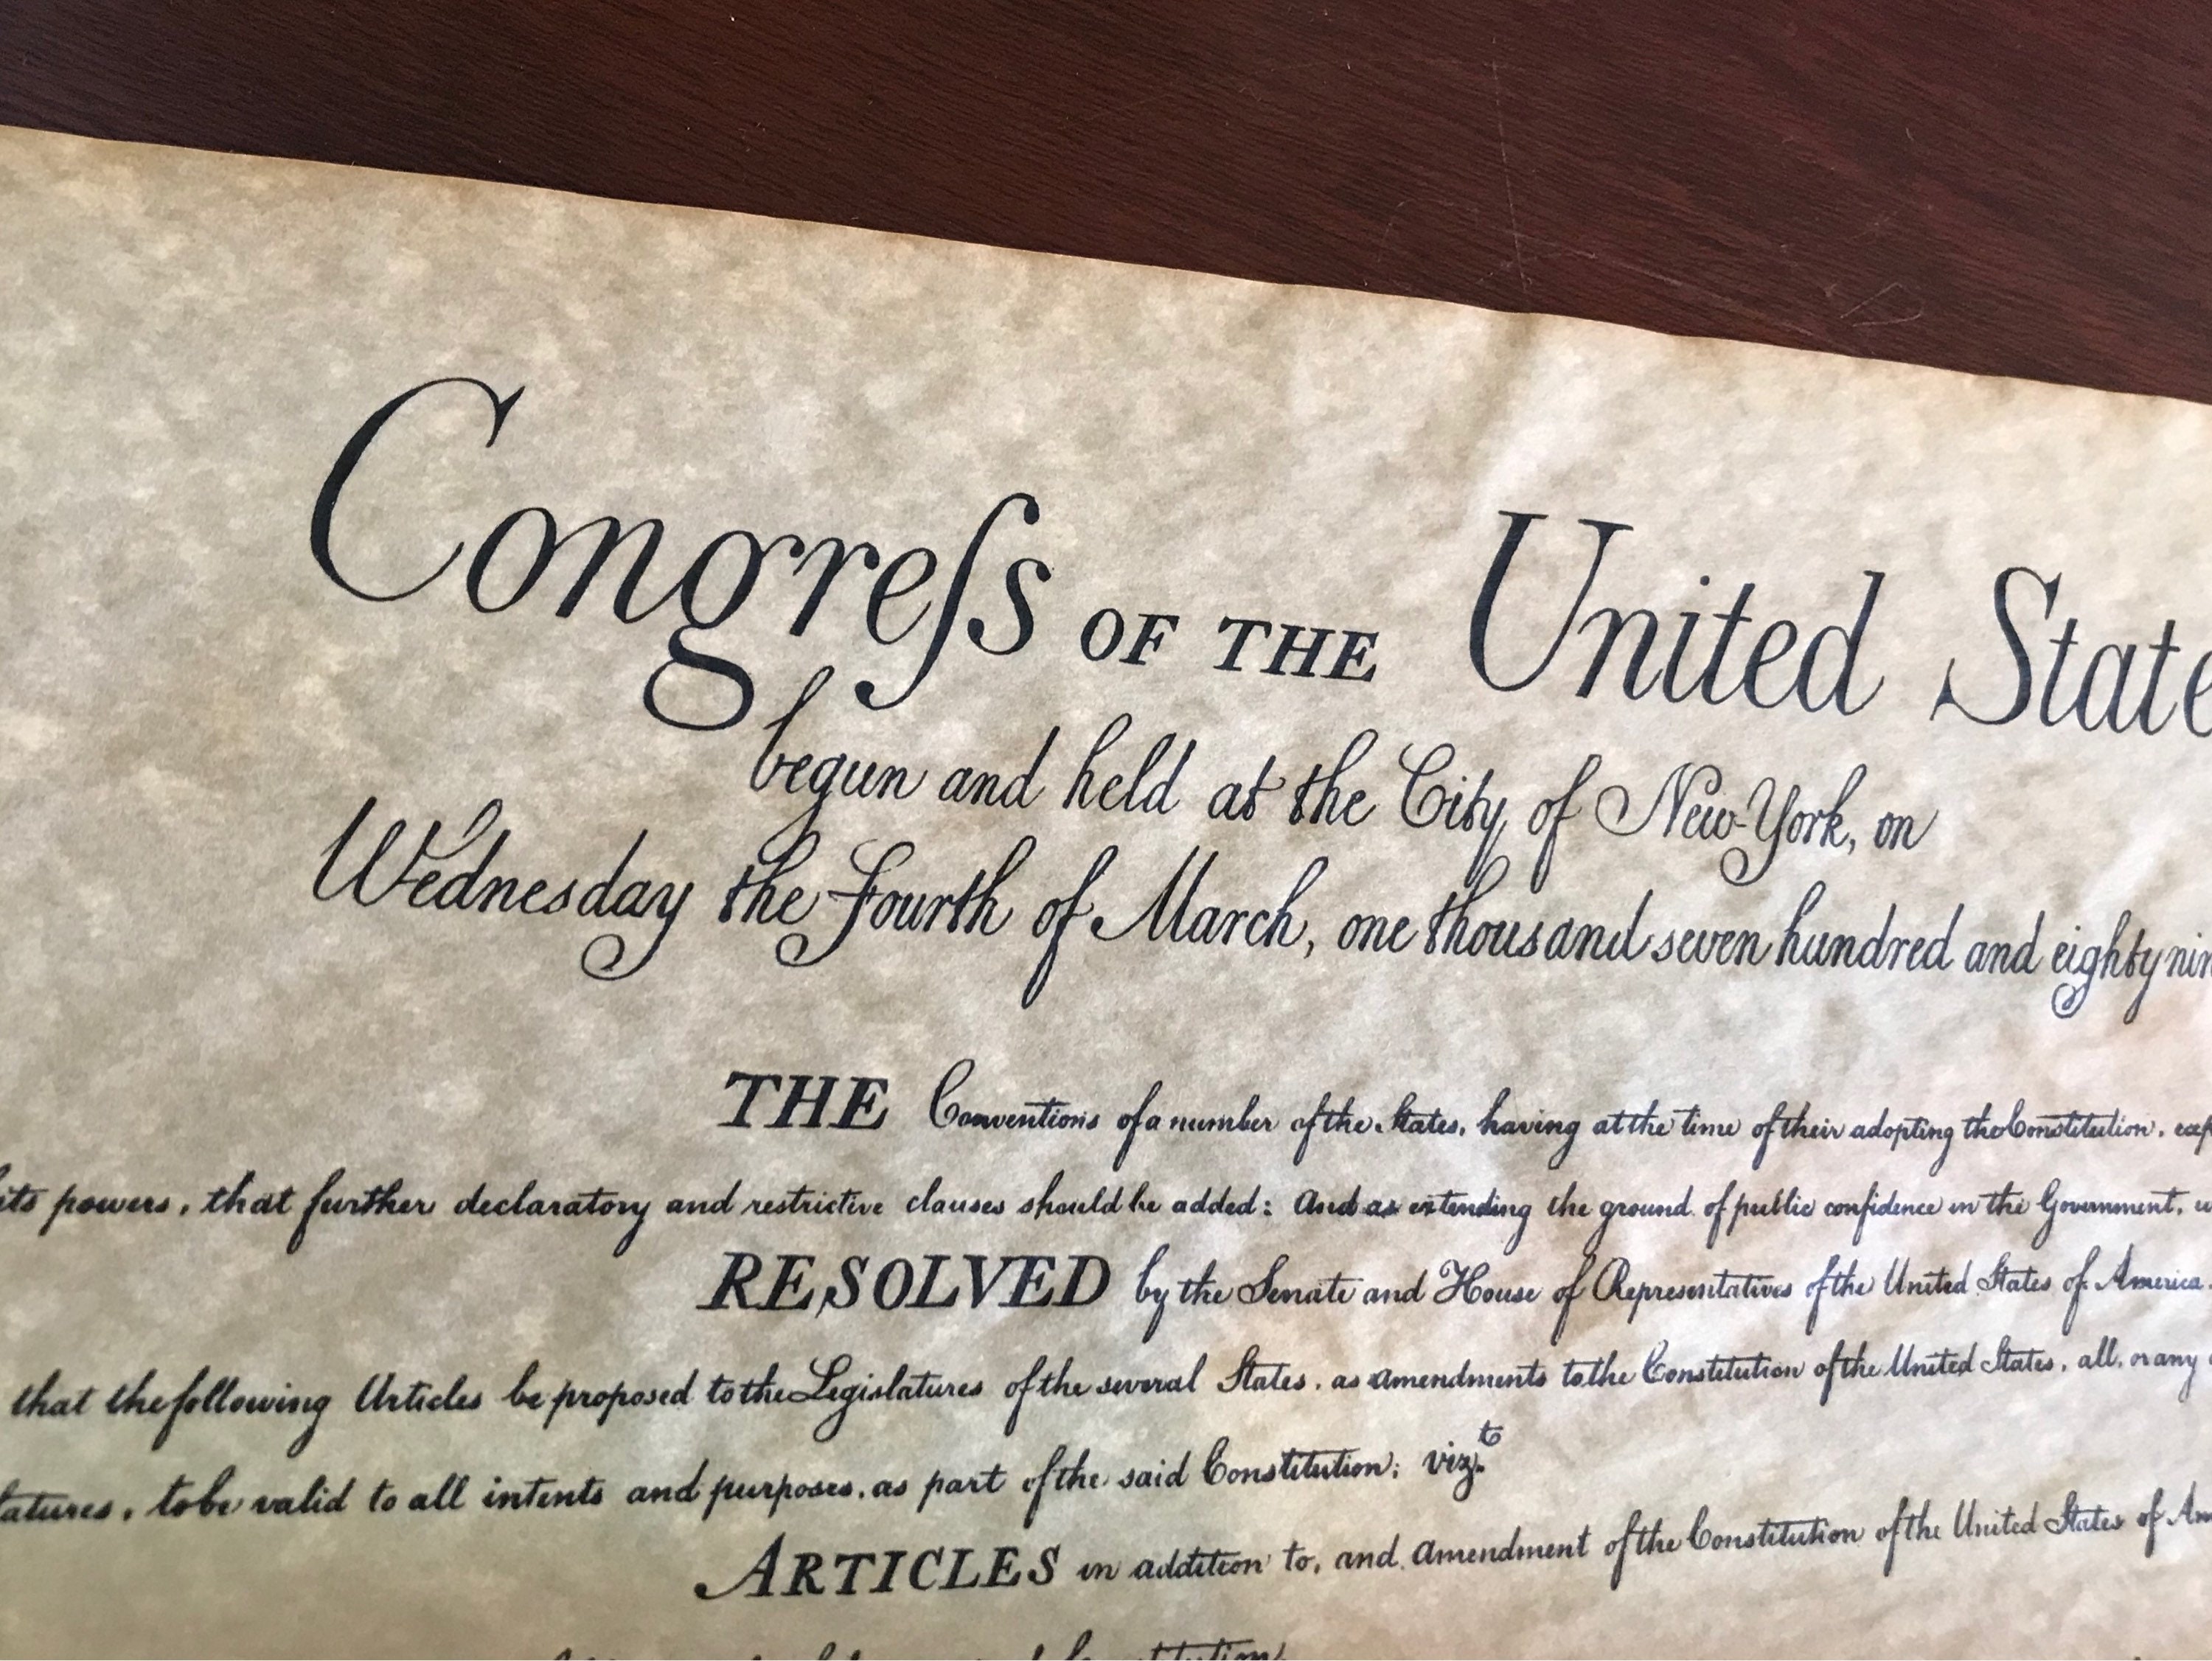 Congreſs OF THE United State
begun and held at the City of New-York, on
Wednesday the Fourth of March, one thousand seven hundred and eighty nin
THE Conventions of a number of the States, having at the time of their adopting the Constitution, exp
its powers, that further declaratory and restrictive clauses should be added: And as extending the ground of public confidence in the Government, w
RESOLVED by the Senate and House of Representatives of the United States of America
that the following Articles be proposed to the Legislatures of the several States, as amendments to the Constitution of the United States, all, or any
latures, to be valid to all intents and purposes, as part of the said Constitution; vizt.
ARTICLES in addition to, and amendment of the Constitution of the United States of Am